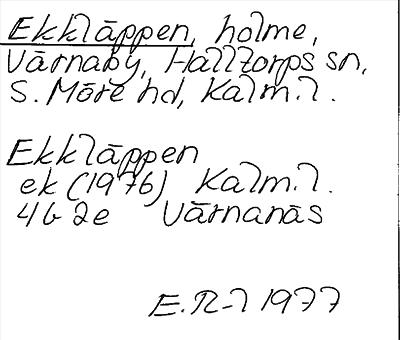 Ekkläppen, holme,
Värnaby, Halltorps sn,
S. Möre hd, Kalm. l.
Ekkläppen
ek (1976) Kalm. l.
4G 2e Värnanäs
E.R-l 1977